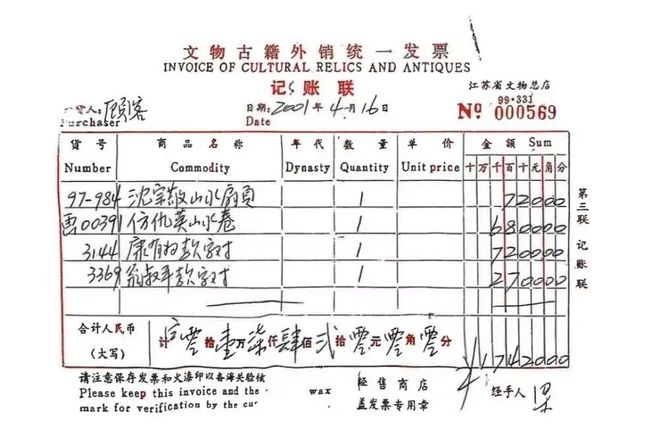 文物古籍外销统一发票
INVOICE OF CULTURAL RELICS AND ANTIQUES
记账联
江苏省文物总店
货人：顾客 日期：2001年4月16日 99·331
Purchaser Date Nº 000569
货号 商品名称 年代 数量 单价 金额 Sum
Number Commodity Dynasty Quantity Unit price 十万千百十元角分
97-984 沈宗敬山水扇页 1 72000
西00391 仿仇英山水卷 1 680000
3144 康有为款字对 1 720000
3369 翁叔平款字对 1 270000
合计人民币
(大写) 计 零拾壹万柒仟肆佰贰拾零元零角零分 ¥1742000
第三联 记账联
请注意保存发票和火漆印以备海关验核
Please keep this invoice and the wax
mark for verification by the cu
经售商店
盖发票专用章
经手人 梁